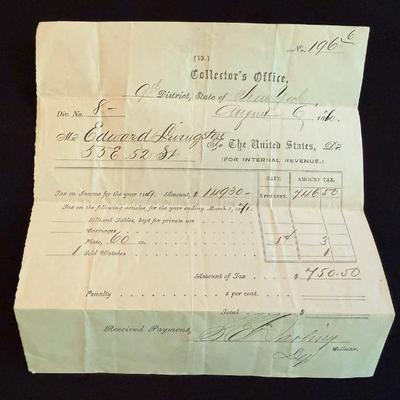 (19.)
No. 196
Collector's Office,
9th District, State of New York
August 6, 1870.
Div. No. 8-
Mr Edward Livingston
53 E. 52 St
To The United States, Dr
(FOR INTERNAL REVENUE.)
RATE AMOUNT TAX.
Tax on Income for the year 186 , Amount, $ 14930- 5 PER CENT. 746.50
Tax on the following articles, for the year ending March 1, 187 .
Billiard Tables, kept for private use
Carriages,
Plate, 60 oz. 5¢ 3
1 Gold Watches 1
Amount of Tax $ 750.50
Penalty $ per cent.
Total $
Received Payment,
Collector.